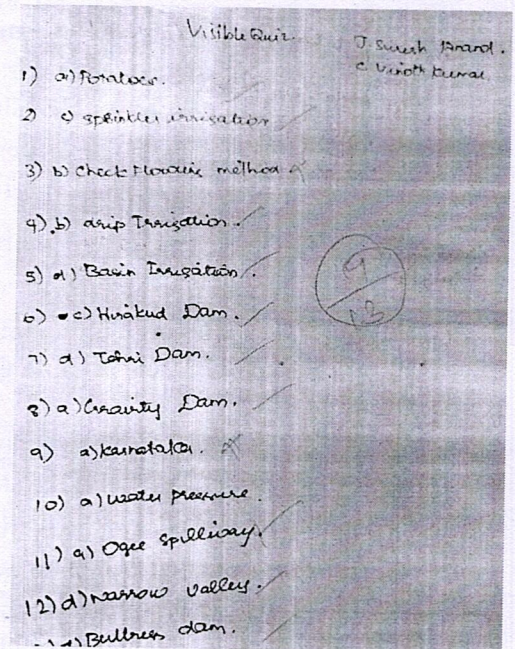 Visible Quiz.
J. Suresh Anand.
C. Vinoth Kumar
1) a) Potatoes.
2) c) sprinkler irrigation
3) b) check flooding method
4) b) drip Irrigation.
5) d) Basin Irrigation.
6) c) Hirakud Dam.
7) d) Tehri Dam.
8) a) Gravity Dam.
9) a) Karnataka.
10) a) water pressure.
11) a) Ogee spillway.
12) d) Narrow valley.
Buttress dam.
9
13